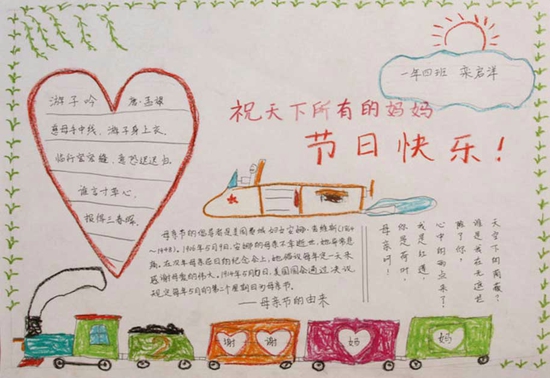 一年四班 栾启洋
祝天下所有的妈妈
节日快乐!
游子吟 唐·孟郊
慈母手中线,游子身上衣,
临行密密缝,意恐迟迟归
谁言寸草心,
报得三春晖。
母亲节的倡导者是美国费城的安娜·
1906年5月9日,安娜的母亲不幸逝世,她
痛。在次年母亲忌日的纪念会上,她倡议每年一天来
感谢母爱的伟大。1914年5月 日,美国国会通过决议
规定每年5月的第二个星期日为母亲节。
——母亲节的由来
母亲啊!
你是荷叶,
我是红莲,
心中的雨点来了,
除了你,
谁是我在无遮拦
天空下的荫蔽?
谢 谢 妈 妈